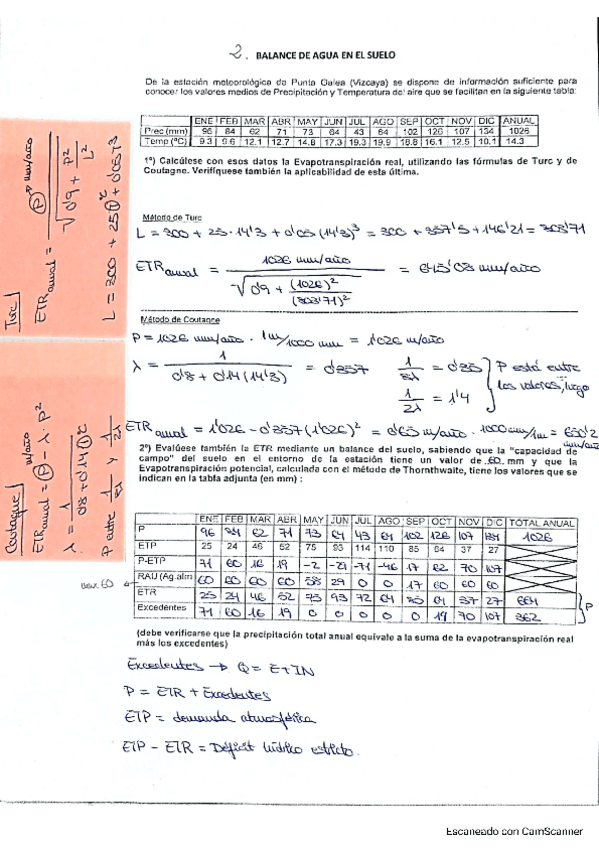 2. BALANCE DE AGUA EN EL SUELO
De la estación meteorológica de Punta Galea (Vizcaya) se dispone de información suficiente para
conocer los valores medios de Precipitación y Temperatura del aire que se facilitan en la siguiente tabla:
ENE FEB MAR ABR MAY JUN JUL AGO SEP OCT NOV DIC ANUAL
Prec (mm) 96 84 62 71 73 64 43 64 102 126 107 134 1026
Temp (ºC) 9.3 9.6 12.1 12.7 14.8 17.3 19.3 19.9 18.8 16.1 12.5 10.1 14.3
1º) Calcúlese con esos datos la Evapotranspiración real, utilizando las fórmulas de Turc y de
Coutagne. Verifíquese también la aplicabilidad de esta última.
Turc
ETR anual = P / √(0'9 + P²/L²) mm/año
L = 300 + 25 T + 0'05 T³
Método de Turc
L = 300 + 25·14'3 + 0'05 (14'3)³ = 300 + 357'5 + 146'21 = 803'71
ETR anual = 1026 mm/año / √(0'9 + (1026)²/(803'71)²) = 645'03 mm/año
Método de Coutagne
P = 1026 mm/año · 1m/1000 mm = 1'026 m/año
λ = 1 / (0'8 + 0'14(14'3)) = 0'357
1/8λ = 0'35
1/2λ = 1'4
P está entre
los valores, luego
ETR anual = 1'026 - 0'357(1'026)² = 0'65 m/año · 1000mm/1m = 650'2 mm/año
Coutagne
ETR anual = P - λ·P² m/año
λ = 1 / (0'8 + 0'14 T)
P entre 1/8λ y 1/2λ
2º) Evalúese también la ETR mediante un balance del suelo, sabiendo que la "capacidad de
campo" del suelo en el entorno de la estación tiene un valor de 60 mm y que la
Evapotranspiración potencial, calculada con el método de Thornthwaite, tiene los valores que se
indican en la tabla adjunta (en mm) :
ENE FEB MAR ABR MAY JUN JUL AGO SEP OCT NOV DIC TOTAL ANUAL
P 96 84 62 71 73 64 43 64 102 126 107 134 1026
ETP 25 24 46 52 75 93 114 110 85 64 37 27
P-ETP 71 60 16 19 -2 -29 -71 -46 17 62 70 107
max 60 RAU (Ag.alm 60 60 60 60 58 29 0 0 17 60 60 60
ETR 25 24 46 52 75 93 72 64 85 64 37 27 664
Excedentes 71 60 16 19 0 0 0 0 0 19 70 107 362
P
(debe verificarse que la precipitación total anual equivale a la suma de la evapotranspiración real
más los excedentes)
Excedentes → Q = E + IN
P = ETR + Excedentes
ETP = demanda atmosférica
ETP - ETR = Déficit hídrico
Escaneado con CamScanner